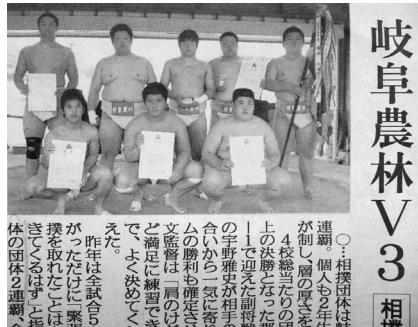 岐阜農林V3
相撲
○…相撲団体は
連覇。個人も2年生
が制し、層の厚さを
４校総当たりの団
上の決勝となった郡
ー１で迎えた副将戦
の宇野雅史が相手の
合いから一気に寄り
ムの勝利も確定させ
文監督は「肩のけが
ど満足に練習でき
で、よく決めてく
えた。
昨年は全試合5
がっただけに「緊張
撲を取れたことは
きてくるはず」と指
体の団体2連覇、全